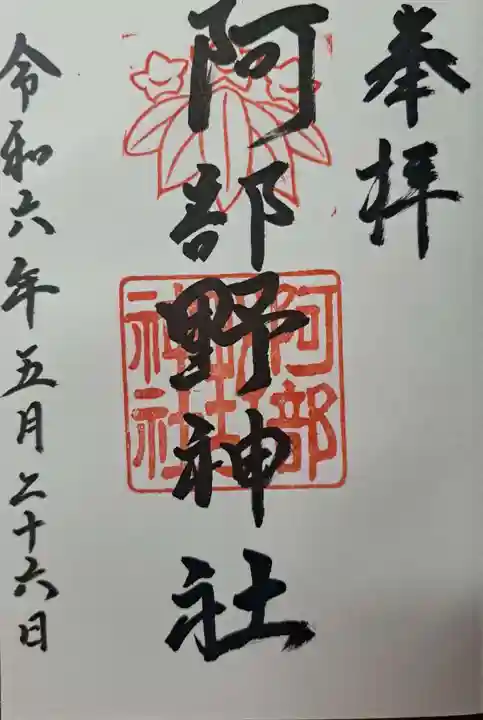 奉拝
阿部野神社
阿部野神社
令和六年五月二十六日